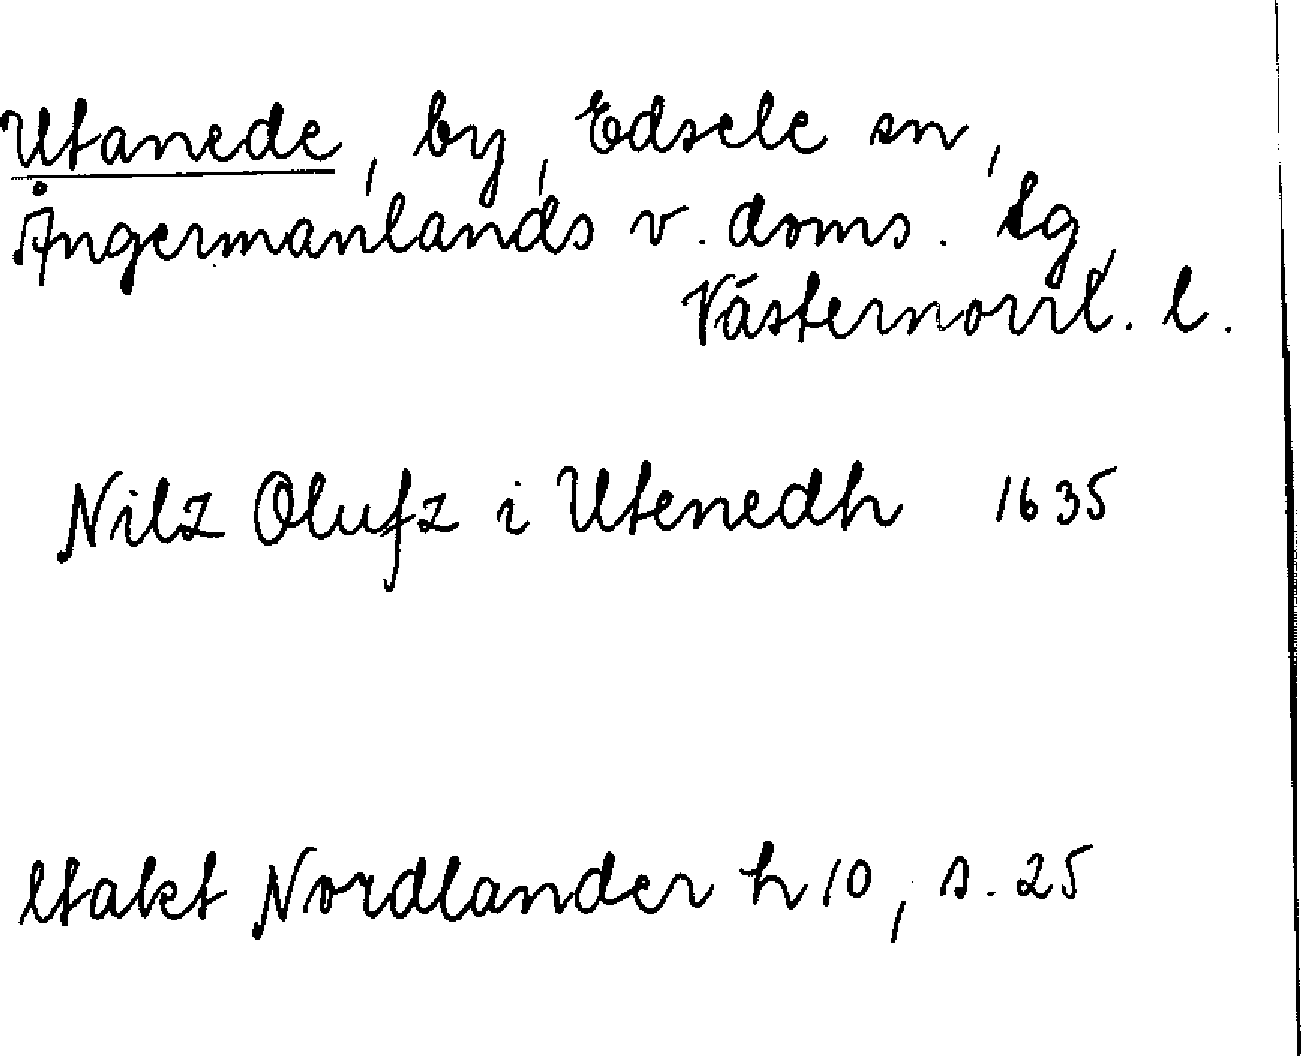 Utanede, by, Edsele sn,
Ångermanlands v. doms. tg,
Västernorrl. l.
Nilz Olufz i Utenedh 1635
Utakt Nordlander h 10, s. 25